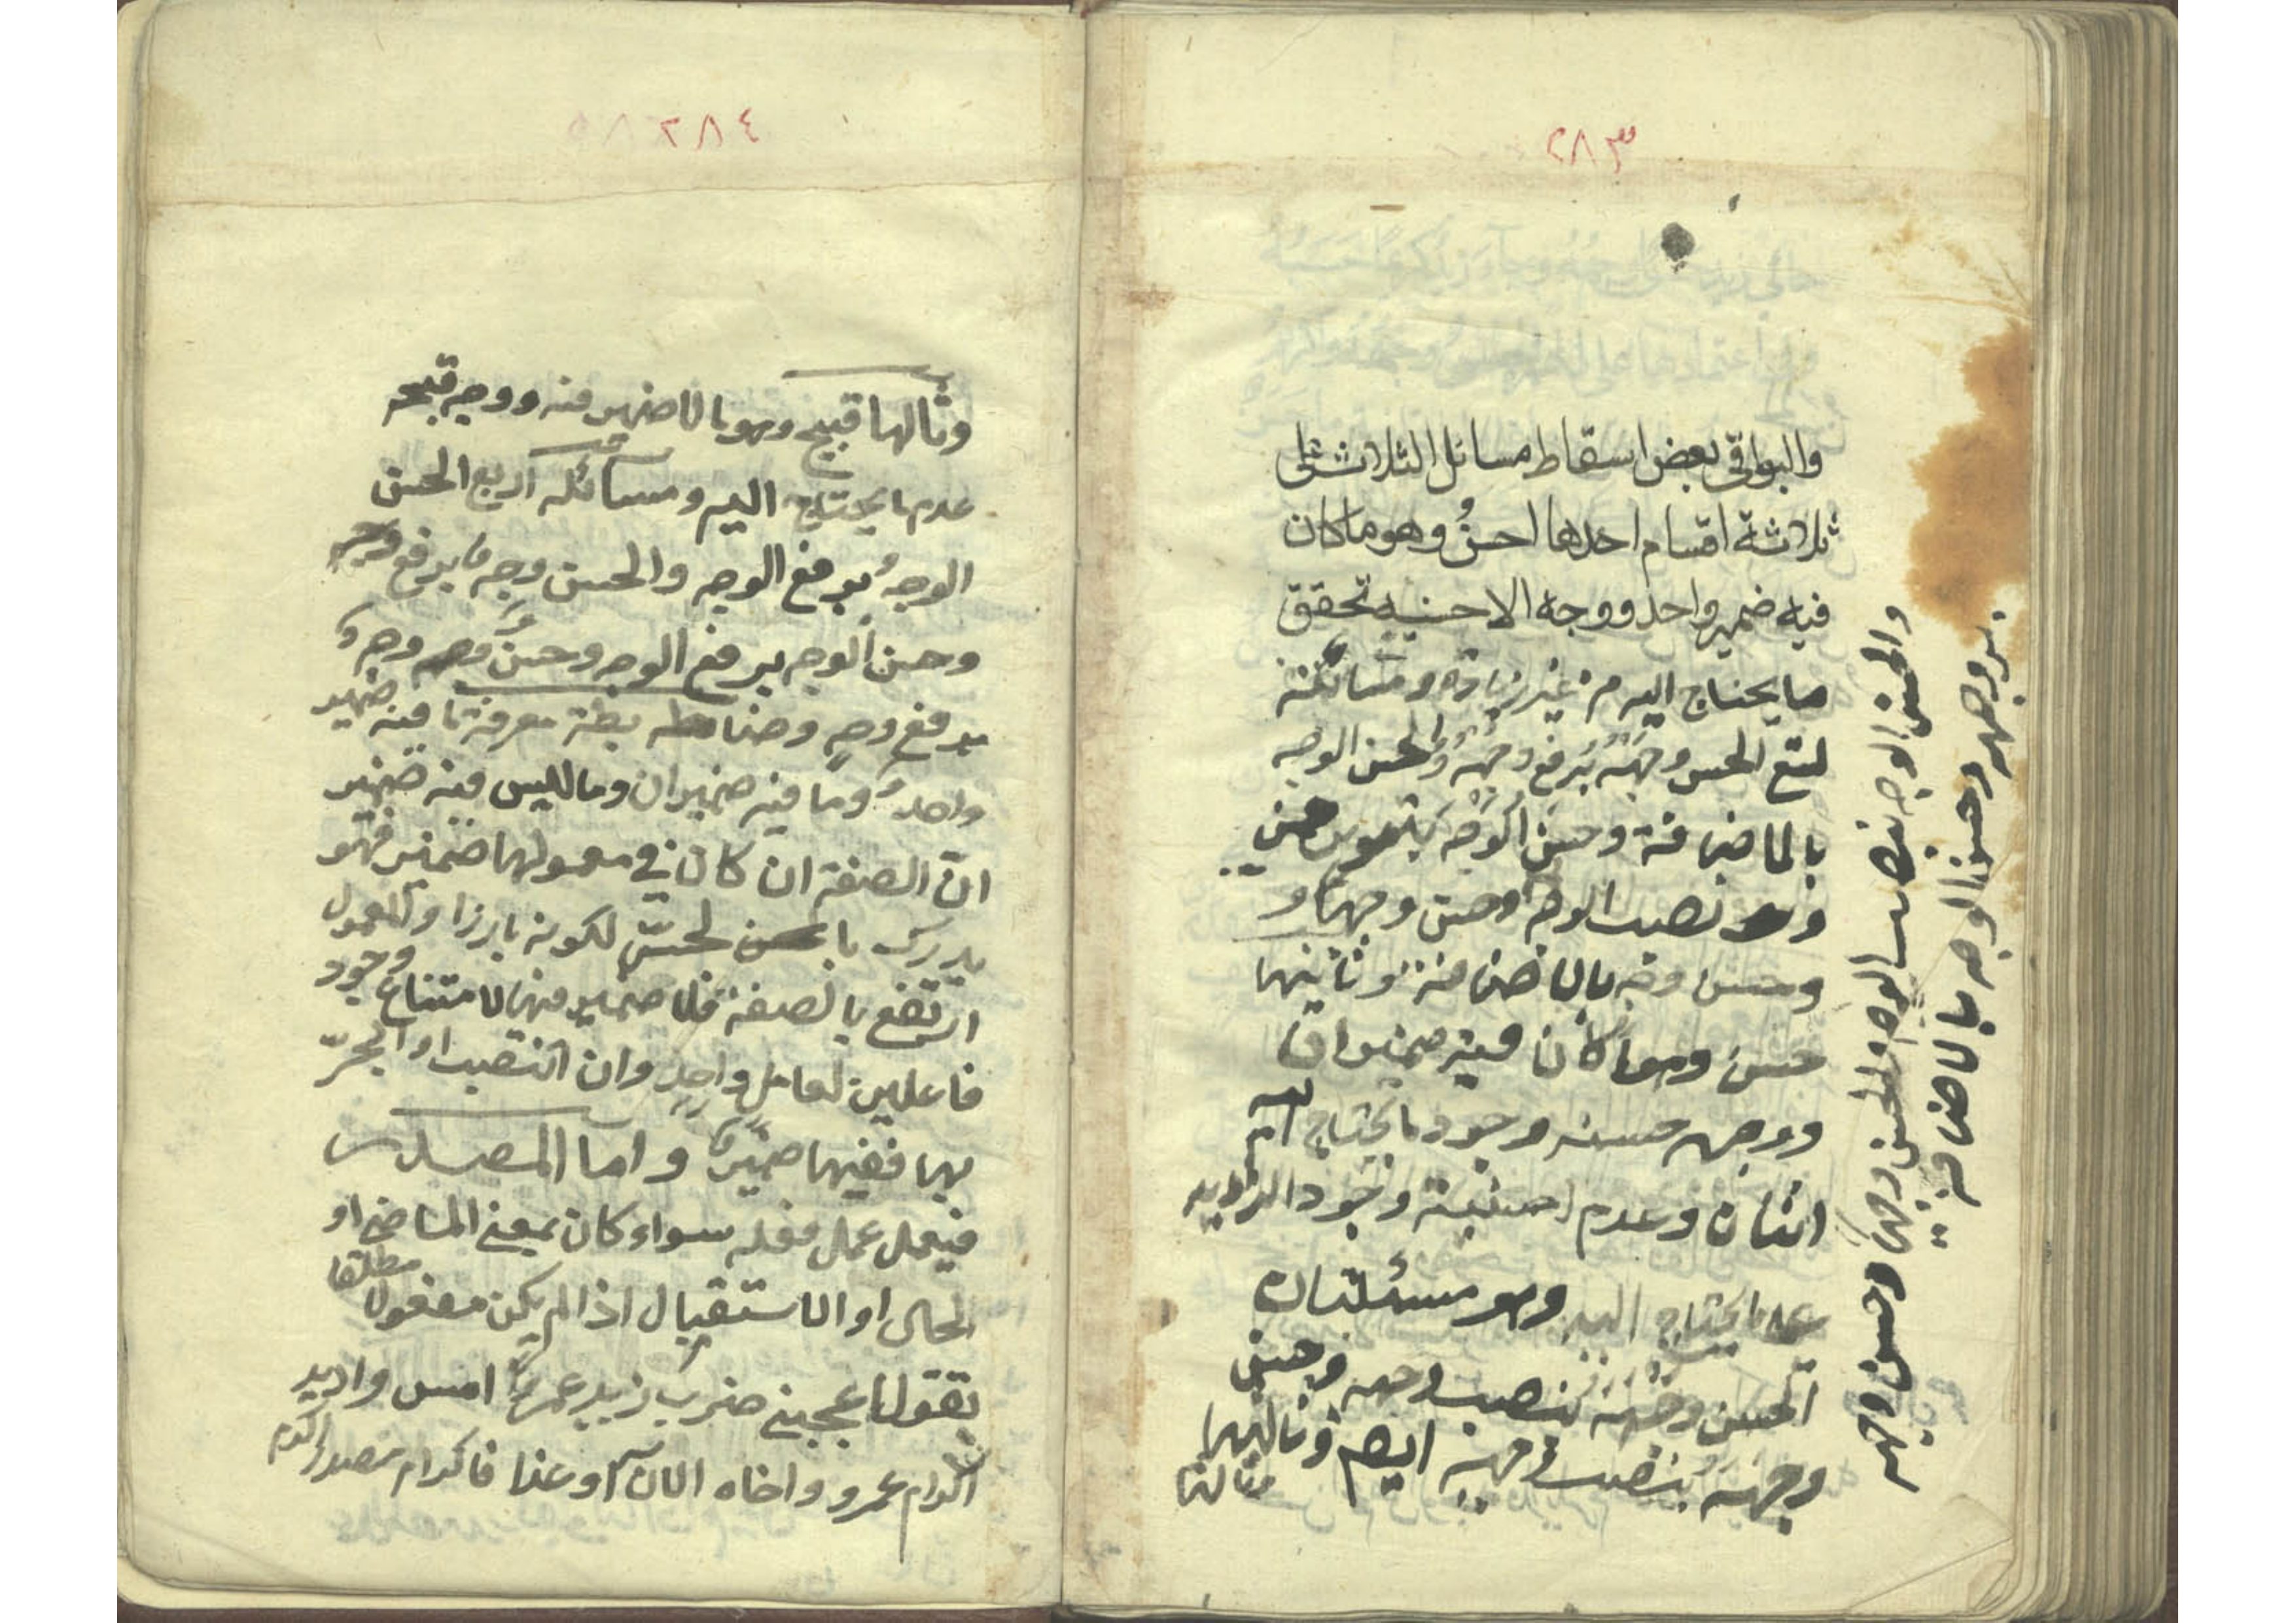 ٢٨٣
والبواقي بعض اسقاط مسائل الثلاث على
ثلاثة اقسام احدها احسنُ وهو ما كان
فيه ضمير واحد ووجه الاحسنيه تحقق
ما يحتاج اليه من غير زيادة ومسائله
تسع الحسن وجهُهُ برفع وجهُهُ والحسن الوجه
بالاضافة وحسن الوجه بتنوين حسن
ونصب الوجه وحسن وجها و
وحسن وجه بالاضافة وثانيها
حسن وهو ما كان فيه ضميران
ووجه حسنه وجود ما يحتاج اليه
اثنان وعدم احسنيته وجود الزايد
على ما يحتاج اليه وهو مسئلتان
الحسن وجهَهُ بنصب وجهه وحسن
وجهه بنصب وجهه ايضا وثالثها
والحسن الوجه بنصب الوجه والحسن وجها وحسن وجهه
برفع وجهه وحسن الوجه بالاضافة
٢٨٤
وثالثها قبيح وهو ما لا ضمير فيه ووجه قبحه
عدم ما يحتاج اليه ومسائله اربع الحسن
الوجهُ برفع الوجه والحسن وجه برفع وجه
وحسن الوجه برفع الوجه وحسن وجه
برفع وجه وضابطة معرفة ما فيه ضمير
واحد وما فيه ضميران وما ليس فيه ضمير
انّ الصفة ان كان في معمولها ضمير فهو
يدرك بالحسّ لكونه بارزا والمعمول
ارتفع بالصفة فلا ضمير فيها لامتناع وجود
فاعلين لعامل واحد وان انتصب او انجرّ
بها ففيها ضمير واما المصدر
فيعمل عمل فعله سواء كان بمعنى الماضي او
الحال او الاستقبال اذا لم يكن مفعولا مطلقا
تقول اعجبني ضرب زيد عمرا امس واريد
اكرام عمرو واخاه الان او غدا فاكرام مصدر اكرم